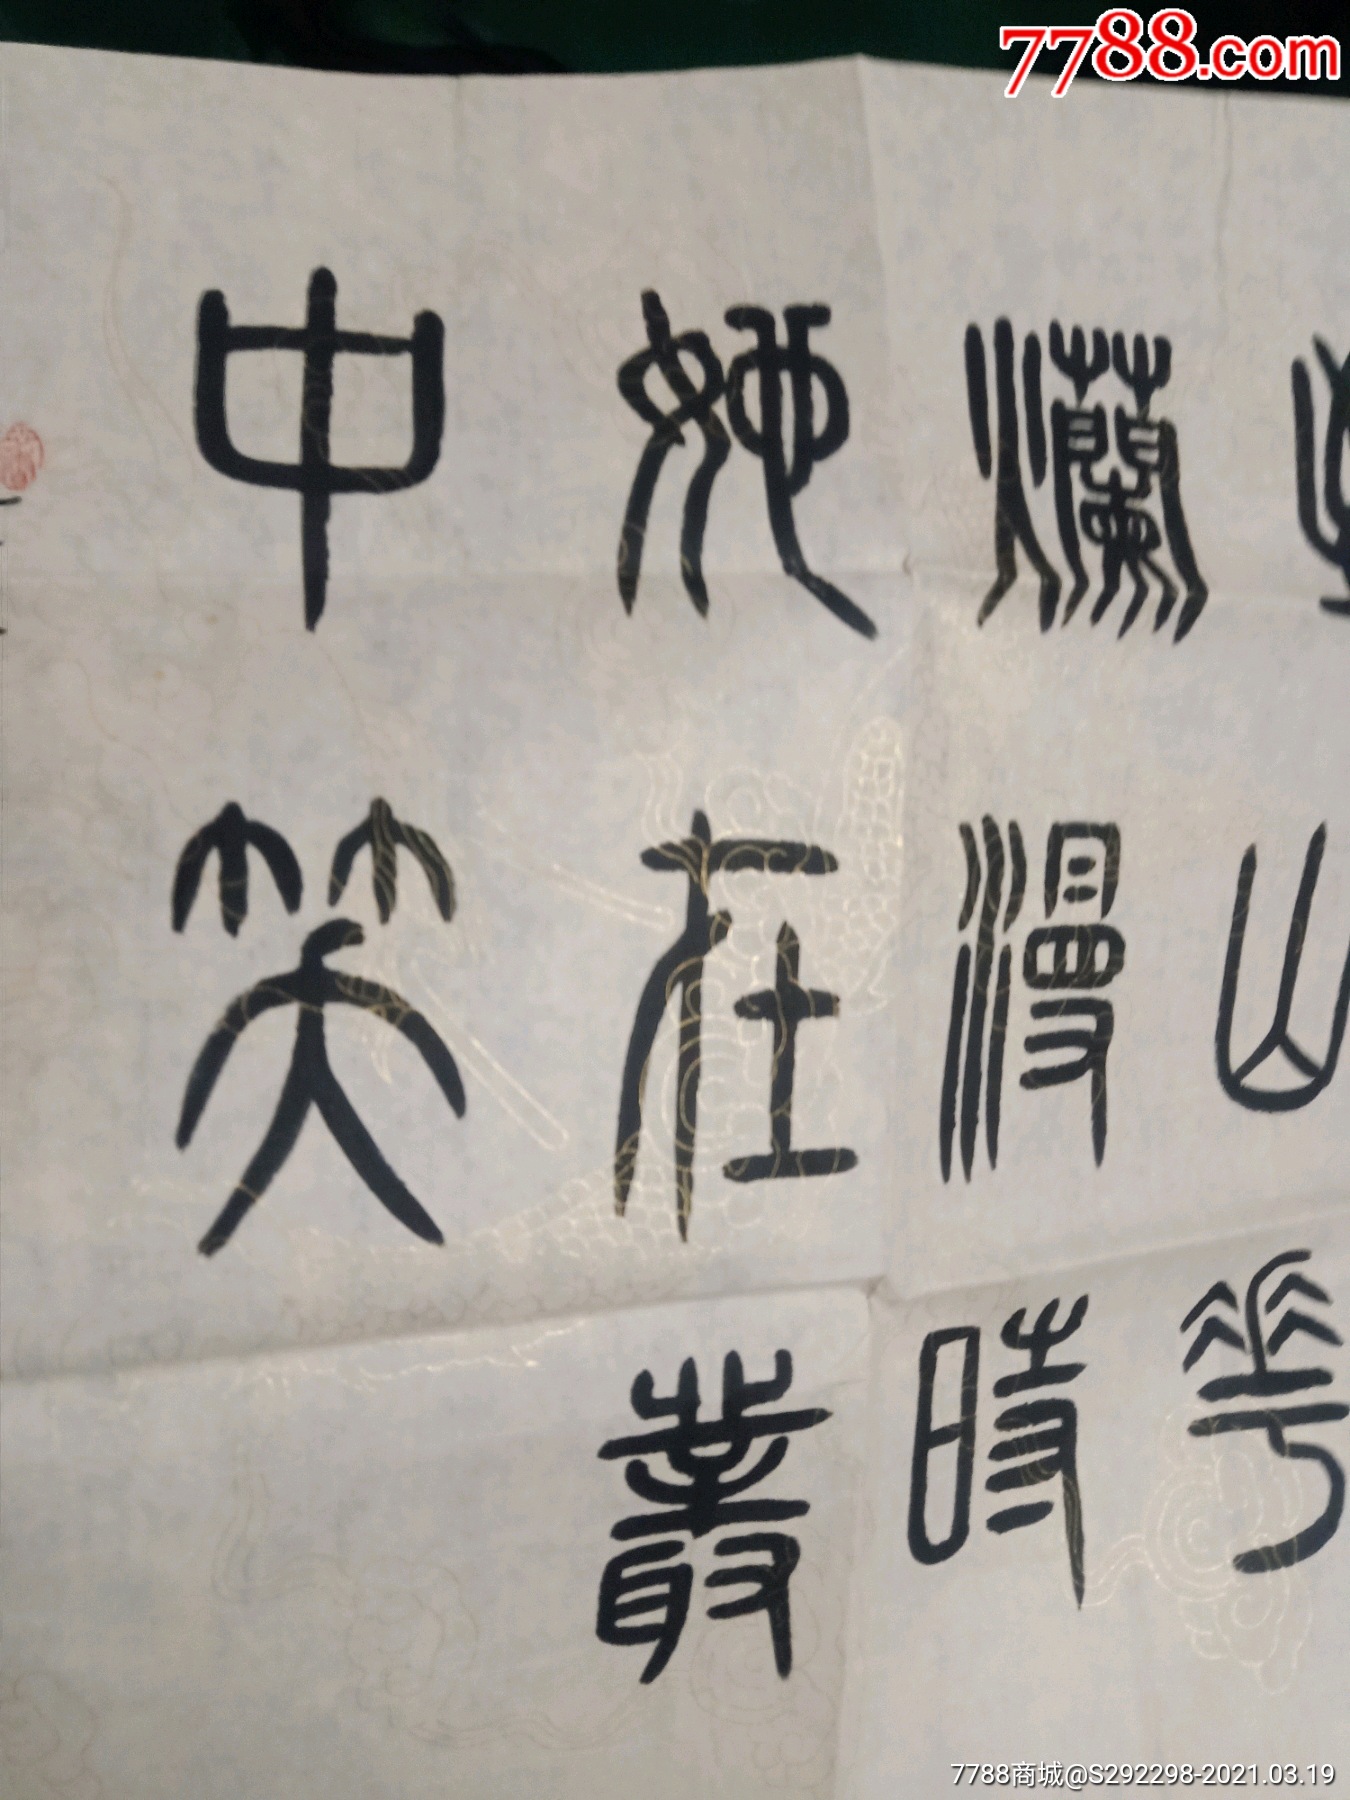 7788.com
山花
爛漫時
她在叢
中笑
7788商城@S292298-2021.03.19